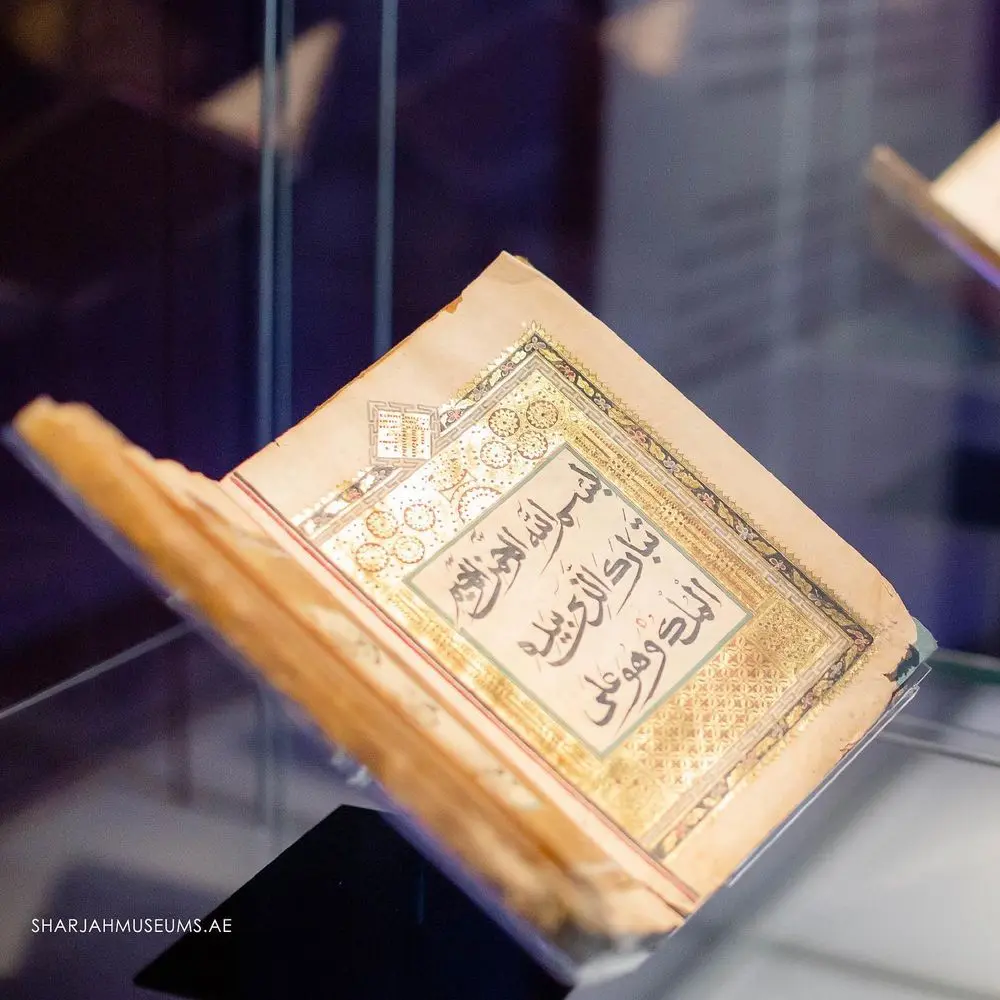 بسم الله الرحمن الرحيم
تبارك الذي بيده
الملك وهو على
SHARJAHMUSEUMS.AE